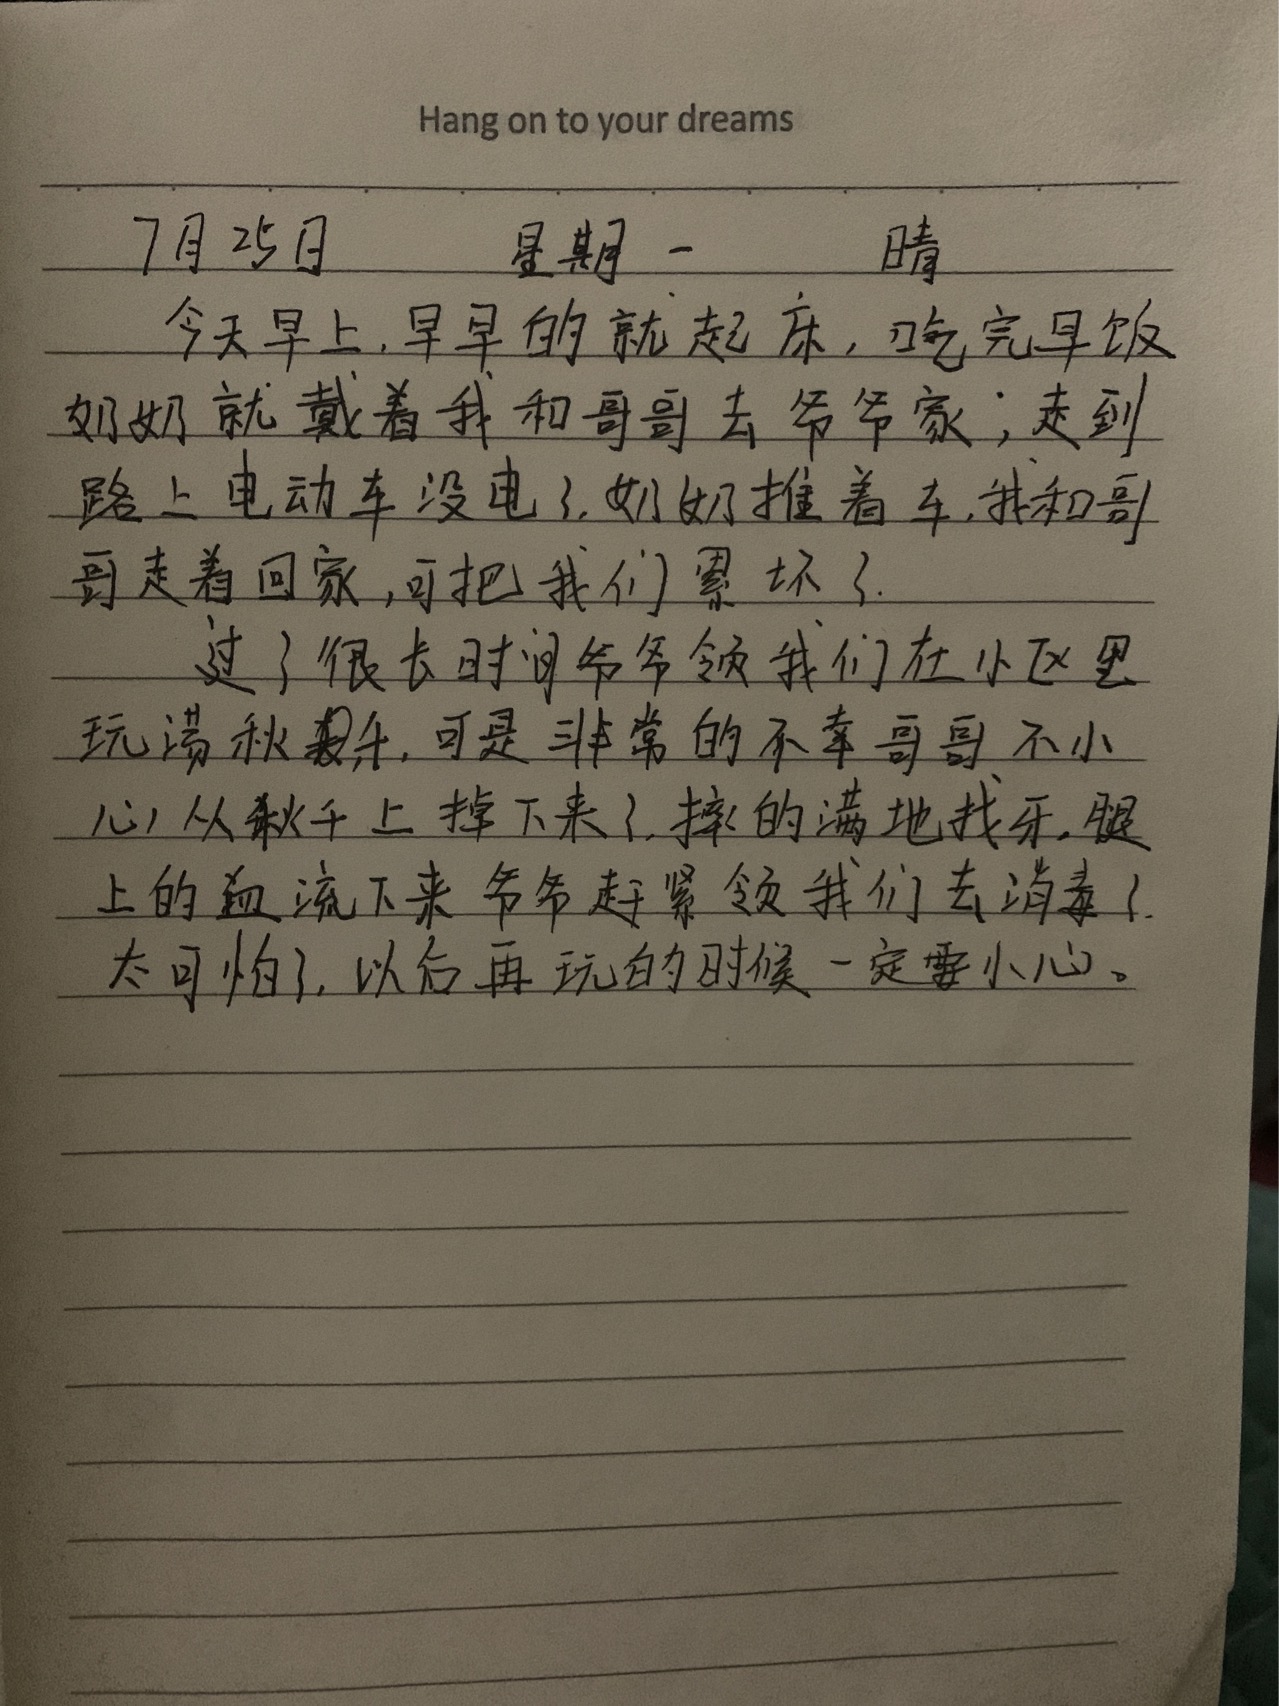 Hang on to your dreams
7月25日 星期一 晴
今天早上,早早的就起床,吃完早饭
奶奶就戴着我和哥哥去爷爷家;走到
路上电动车没电了,奶奶推着车,我和哥
哥走着回家,可把我们累坏了.
过了很长时间爷爷领我们在小区里
玩荡秋千,可是非常的不幸哥哥不小
心从秋千上掉下来了,摔的满地找牙,腿
上的血流下来爷爷赶紧领我们去消毒了.
太可怕了,以后再玩的时候一定要小心。